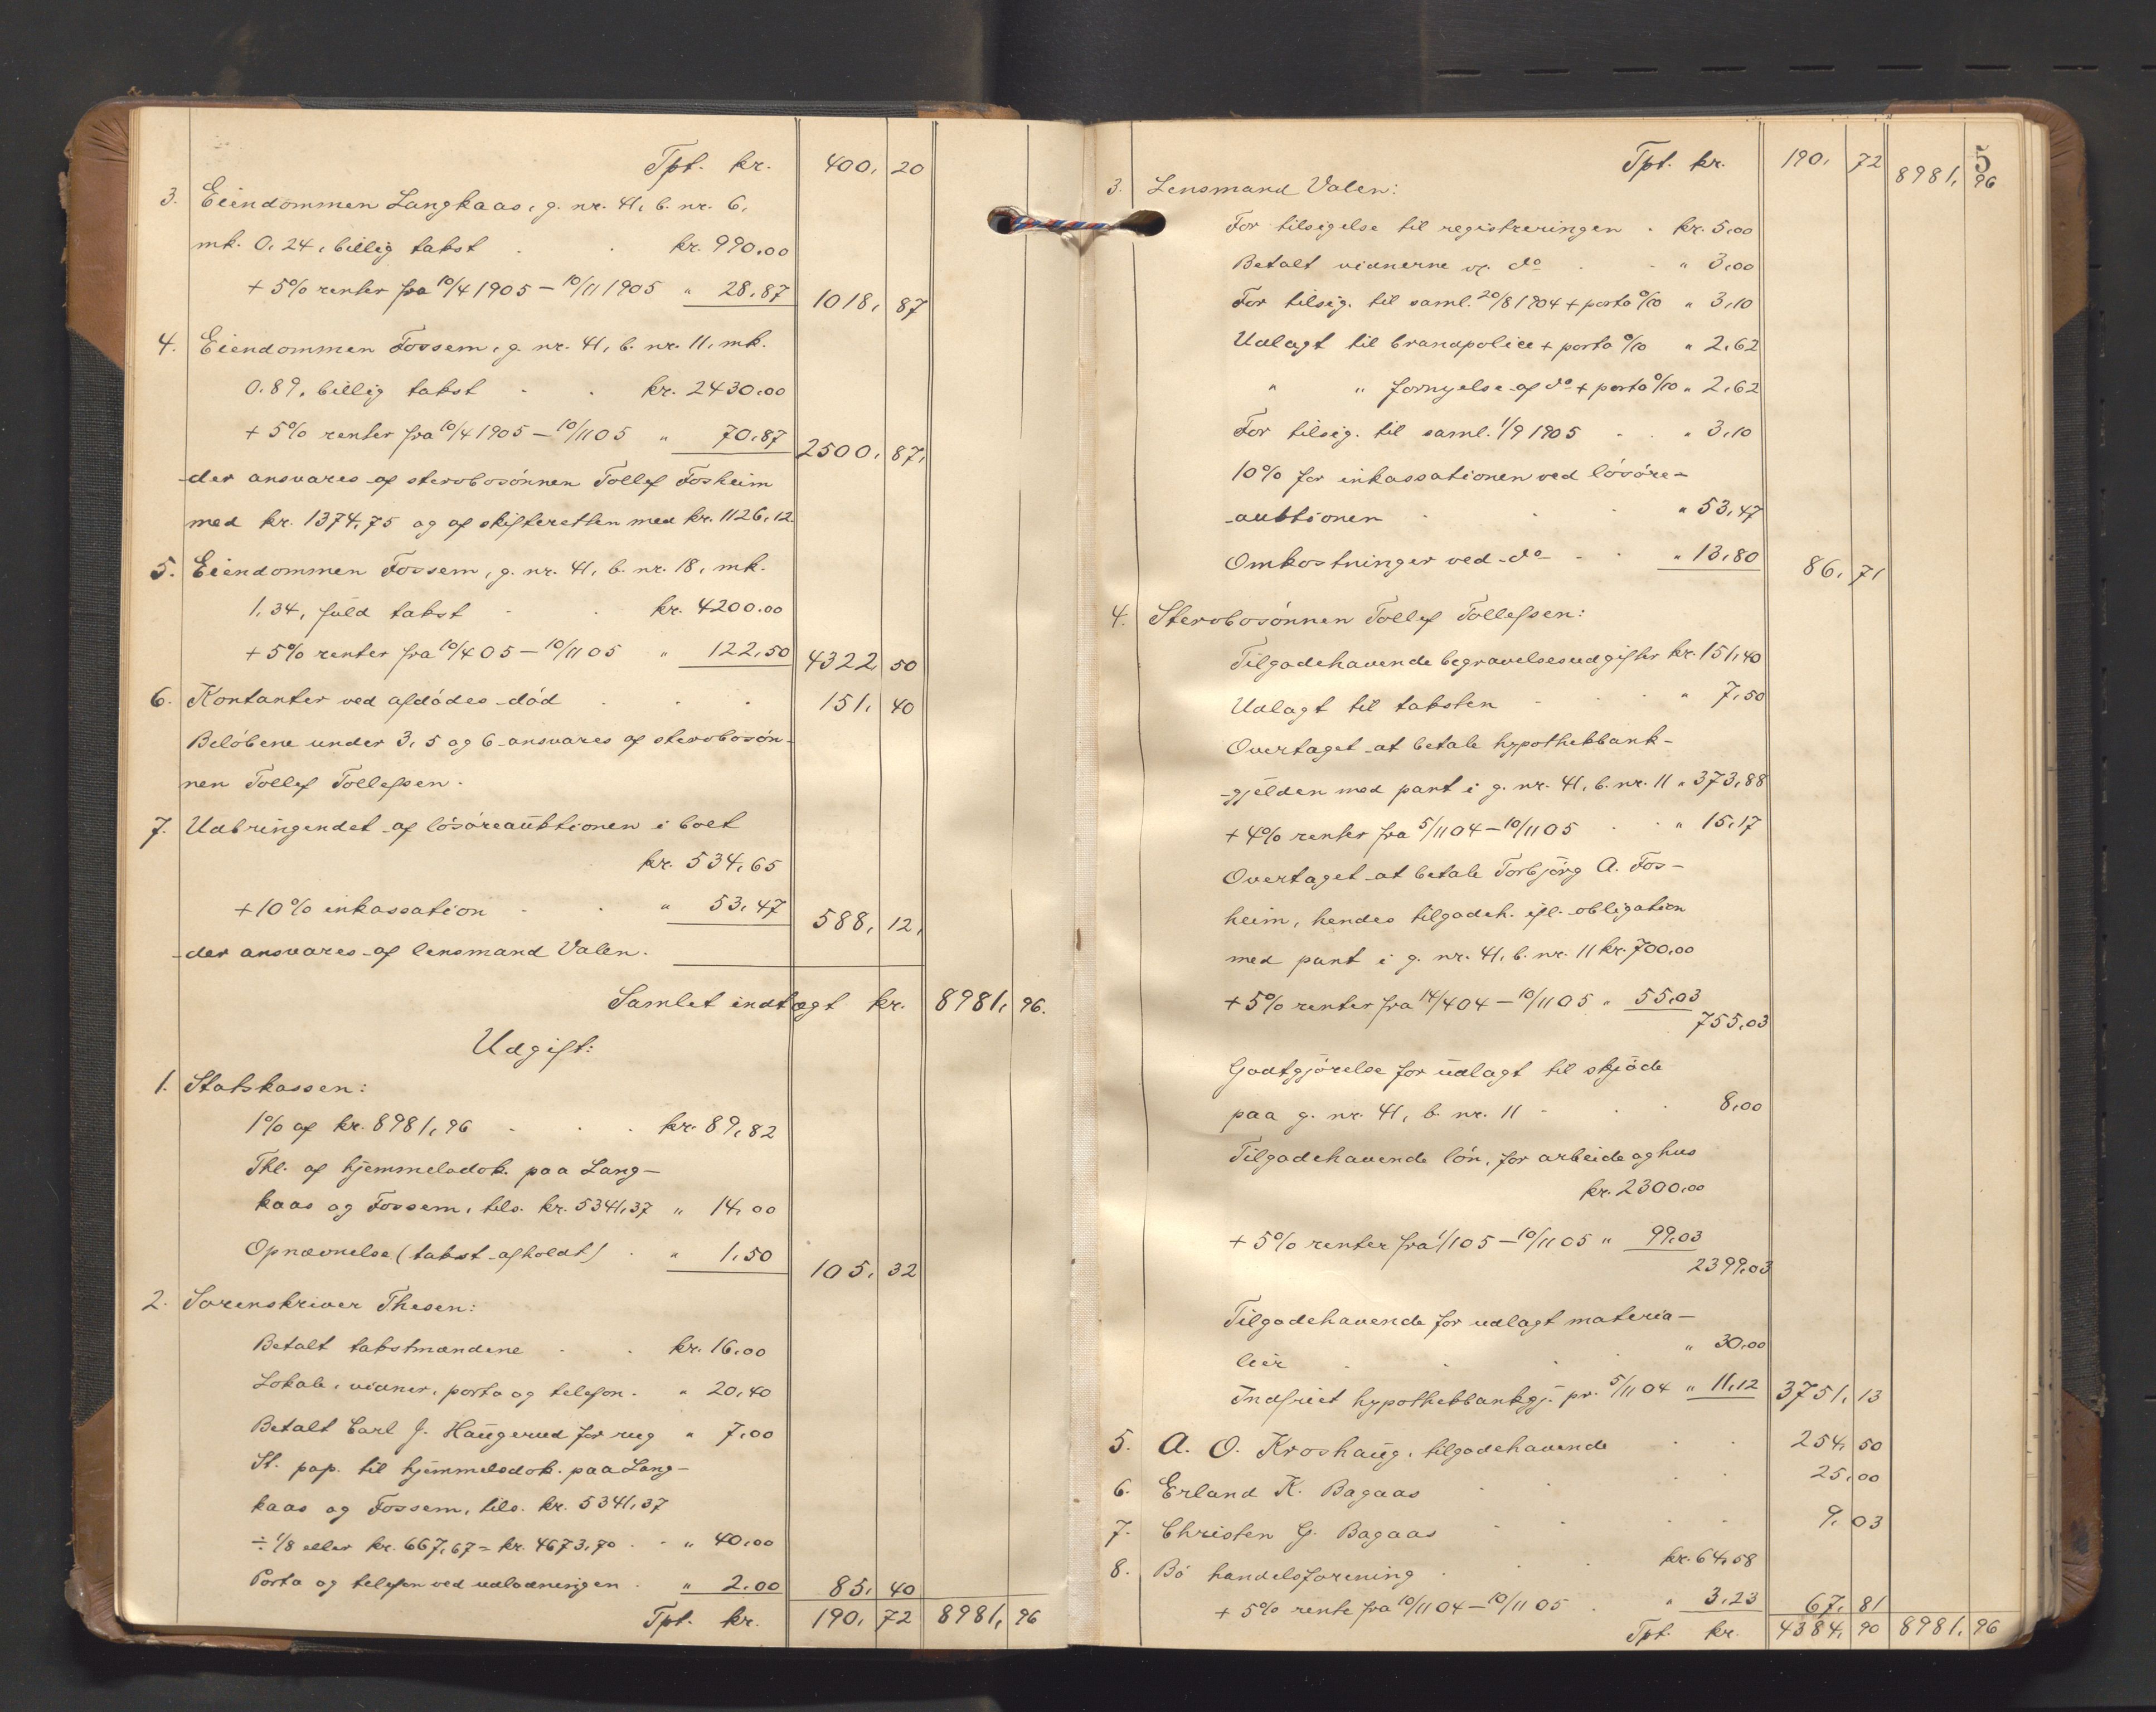 Tpt. kr. 400, 20
3. Eiendommen Langkaas, g. nr. 41, b. nr. 6,
mk. 0,24, billig takst . . kr. 990,00
+ 5% renter fra 10/4 1905 – 10/11 1905 " 28,87 1018, 87
4. Eiendommen Fossem, g. nr. 41, b. nr. 11, mk.
0.89, billig takst . . kr. 2430,00
+ 5% renter fra 10/4 1905 – 10/11 05 " 70,87 2500, 87,
der ansvares af stervbosönnen Tollef Fosheim
med kr. 1374,75 og af skifteretten med kr. 1126,12.
5. Eiendommen Fossem, g. nr. 41, b. nr. 18, mk.
1,34, fuld takst . . kr. 4200.00
+ 5% renter fra 10/4 05 – 10/11 05 " 122,50 4322 50
6. Kontanter ved afdödes död . . . 151, 40
Belöbene under 3, 5 og 6 ansvares af stervbosön-
nen Tollef Tollefsen.
7. Udbringendet af lösöreauktionen i boet
kr. 534,65
+ 10% inkassation . . " 53,47 588, 12,
der ansvares af lensmand Valen.
Samlet indtægt kr. 8981, 96.
Udgift:
1. Statskassen:
1% af kr. 8981,96 . . . kr. 89,82
Thl. af hjemmelsdok. paa Lang-
kaas og Fossem, tils. kr. 5341,37 " 14,00
Opnævnelse (takst afholdt) . " 1,50 105, 32
2. Sorenskriver Thesen:
Betalt takstmændene . . kr. 16,00
Lokale, vidner, porto og telefon . " 20,40
Betalt Carl J. Haugerud for rug " 7,00
St. pap. til hjemmelsdok. paa Lang-
kaas og Fossem, tils. kr. 5341,37
÷ 1/8 eller kr. 667,67 = kr. 4673,70 . . " 40,00
Porto og telefon ved udlodningen . " 2.00 85, 40
Tpt. kr. 190, 72 8981, 96
5
Tpt. kr. 190, 72 8981, 96
3. Lensmand Valen:
For tilsigelse til registreringen . kr. 5,00
Betalt vidnerne v. do . . " 3,00
For tilsig. til saml. 20/8 1904 + porto 0/10 " 3,10
Udlagt til brandpolice + porto 0/10 " 2,62
" " fornyelse af do + porto 0/10 " 2,62
For tilsig. til saml. 1/9 1905 . . " 3,10
10% for inkassationen ved lösöre-
auktionen . . . " 53,47
Omkostninger ved do . . " 13,80 86, 71
4. Stervbosönnen Tollef Tollefsen:
Tilgodehavende begravelsesudgifter kr. 151,40
Udlagt til taksten . . " 7,50
Overtaget at betale hypothekbank-
gjelden med pant i g. nr. 41, b. nr. 11 " 373,88
+ 4% renter fra 5/11 04 – 10/11 05 . . " 15,17
Overtaget at betale Torbjörg A. Fos-
heim, hendes tilgodeh. ifl. obligation
med pant i g. nr. 41, b. nr. 11 kr. 700,00
+ 5% renter fra 14/4 04 – 10/11 05 " 55,03
755,03
Godtgjörelse for udlagt til skjöde
paa g. nr. 41, b. nr. 11 . . . 8,00
Tilgodehavende lön, for arbeide og hus
kr. 2300,00
+ 5% renter fra 1/1 05 – 10/11 05 " 99,03
2399,03
Tilgodehavende for udlagt materia-
lier . . . . " 30,00
Indfriet hypothekbankgj. pr. 5/11 04 " 11,12 3751, 13
5. A. O. Kroshaug, tilgodehavende . . 254, 50
6. Erland K. Bagaas . . . . 25, 00
7. Christen G. Bagaas . . . . 9, 03
8. Bö handelsforening . . . kr. 64,58
+ 5% rente fra 10/11 04 – 10/11 05 . " 3,23 67, 81
Tpt. kr. 4384, 90 8981, 96